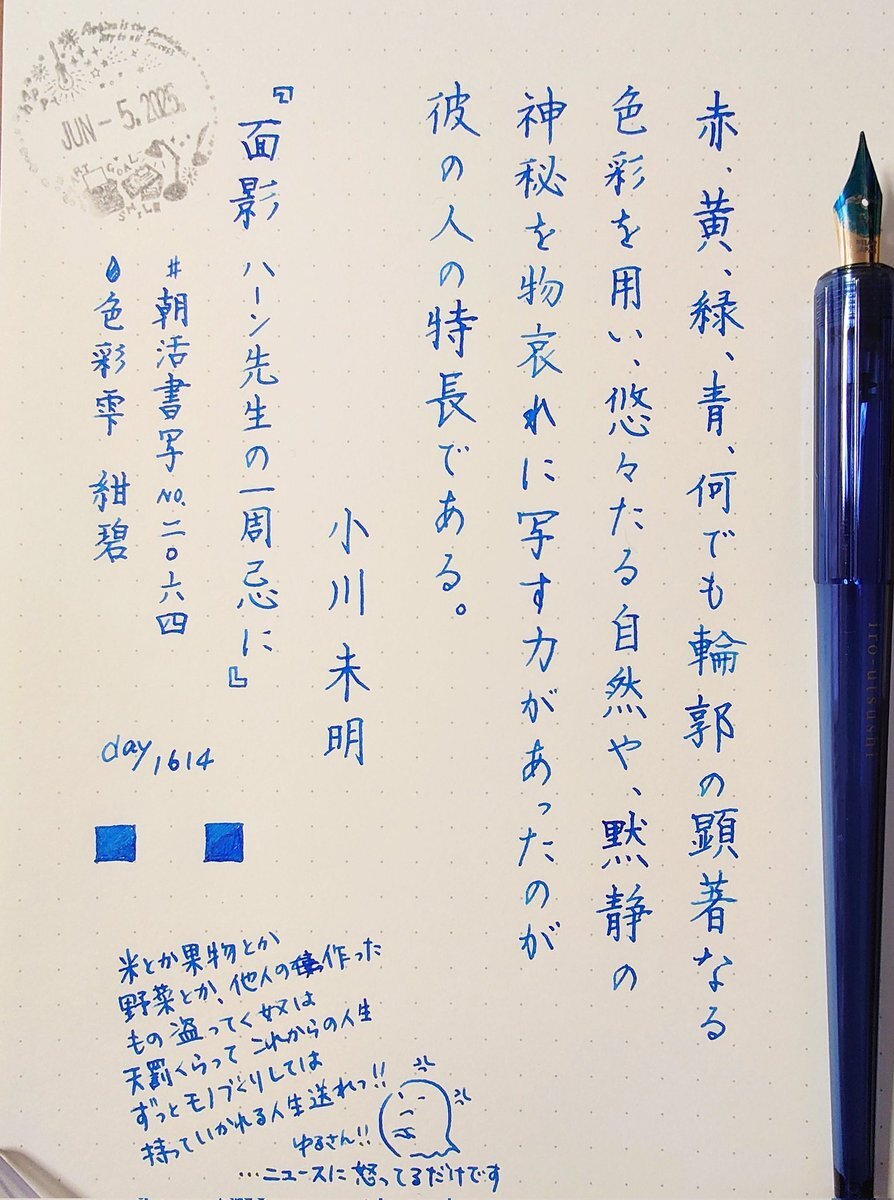 赤、黄、緑、青、何でも輪郭の顕著なる
色彩を用い、悠々たる自然や、黙静の
神秘を物哀れに写す力があったのが
彼の人の特長である。
小川未明
『面影 ハーン先生の一周忌に』
#朝活書写NO.二〇六四
色彩雫 紺碧
day1614
JUN-5.2025
GOAL
SMILE
米とか果物とか
野菜とか、他人の作った
もの盗ってく奴は
天罰くらって これからの人生
ずっとモノづくりしては
持っていかれる人生送れっ!!
ゆるさん!!
…ニュースに怒ってるだけです
iro-utsushi